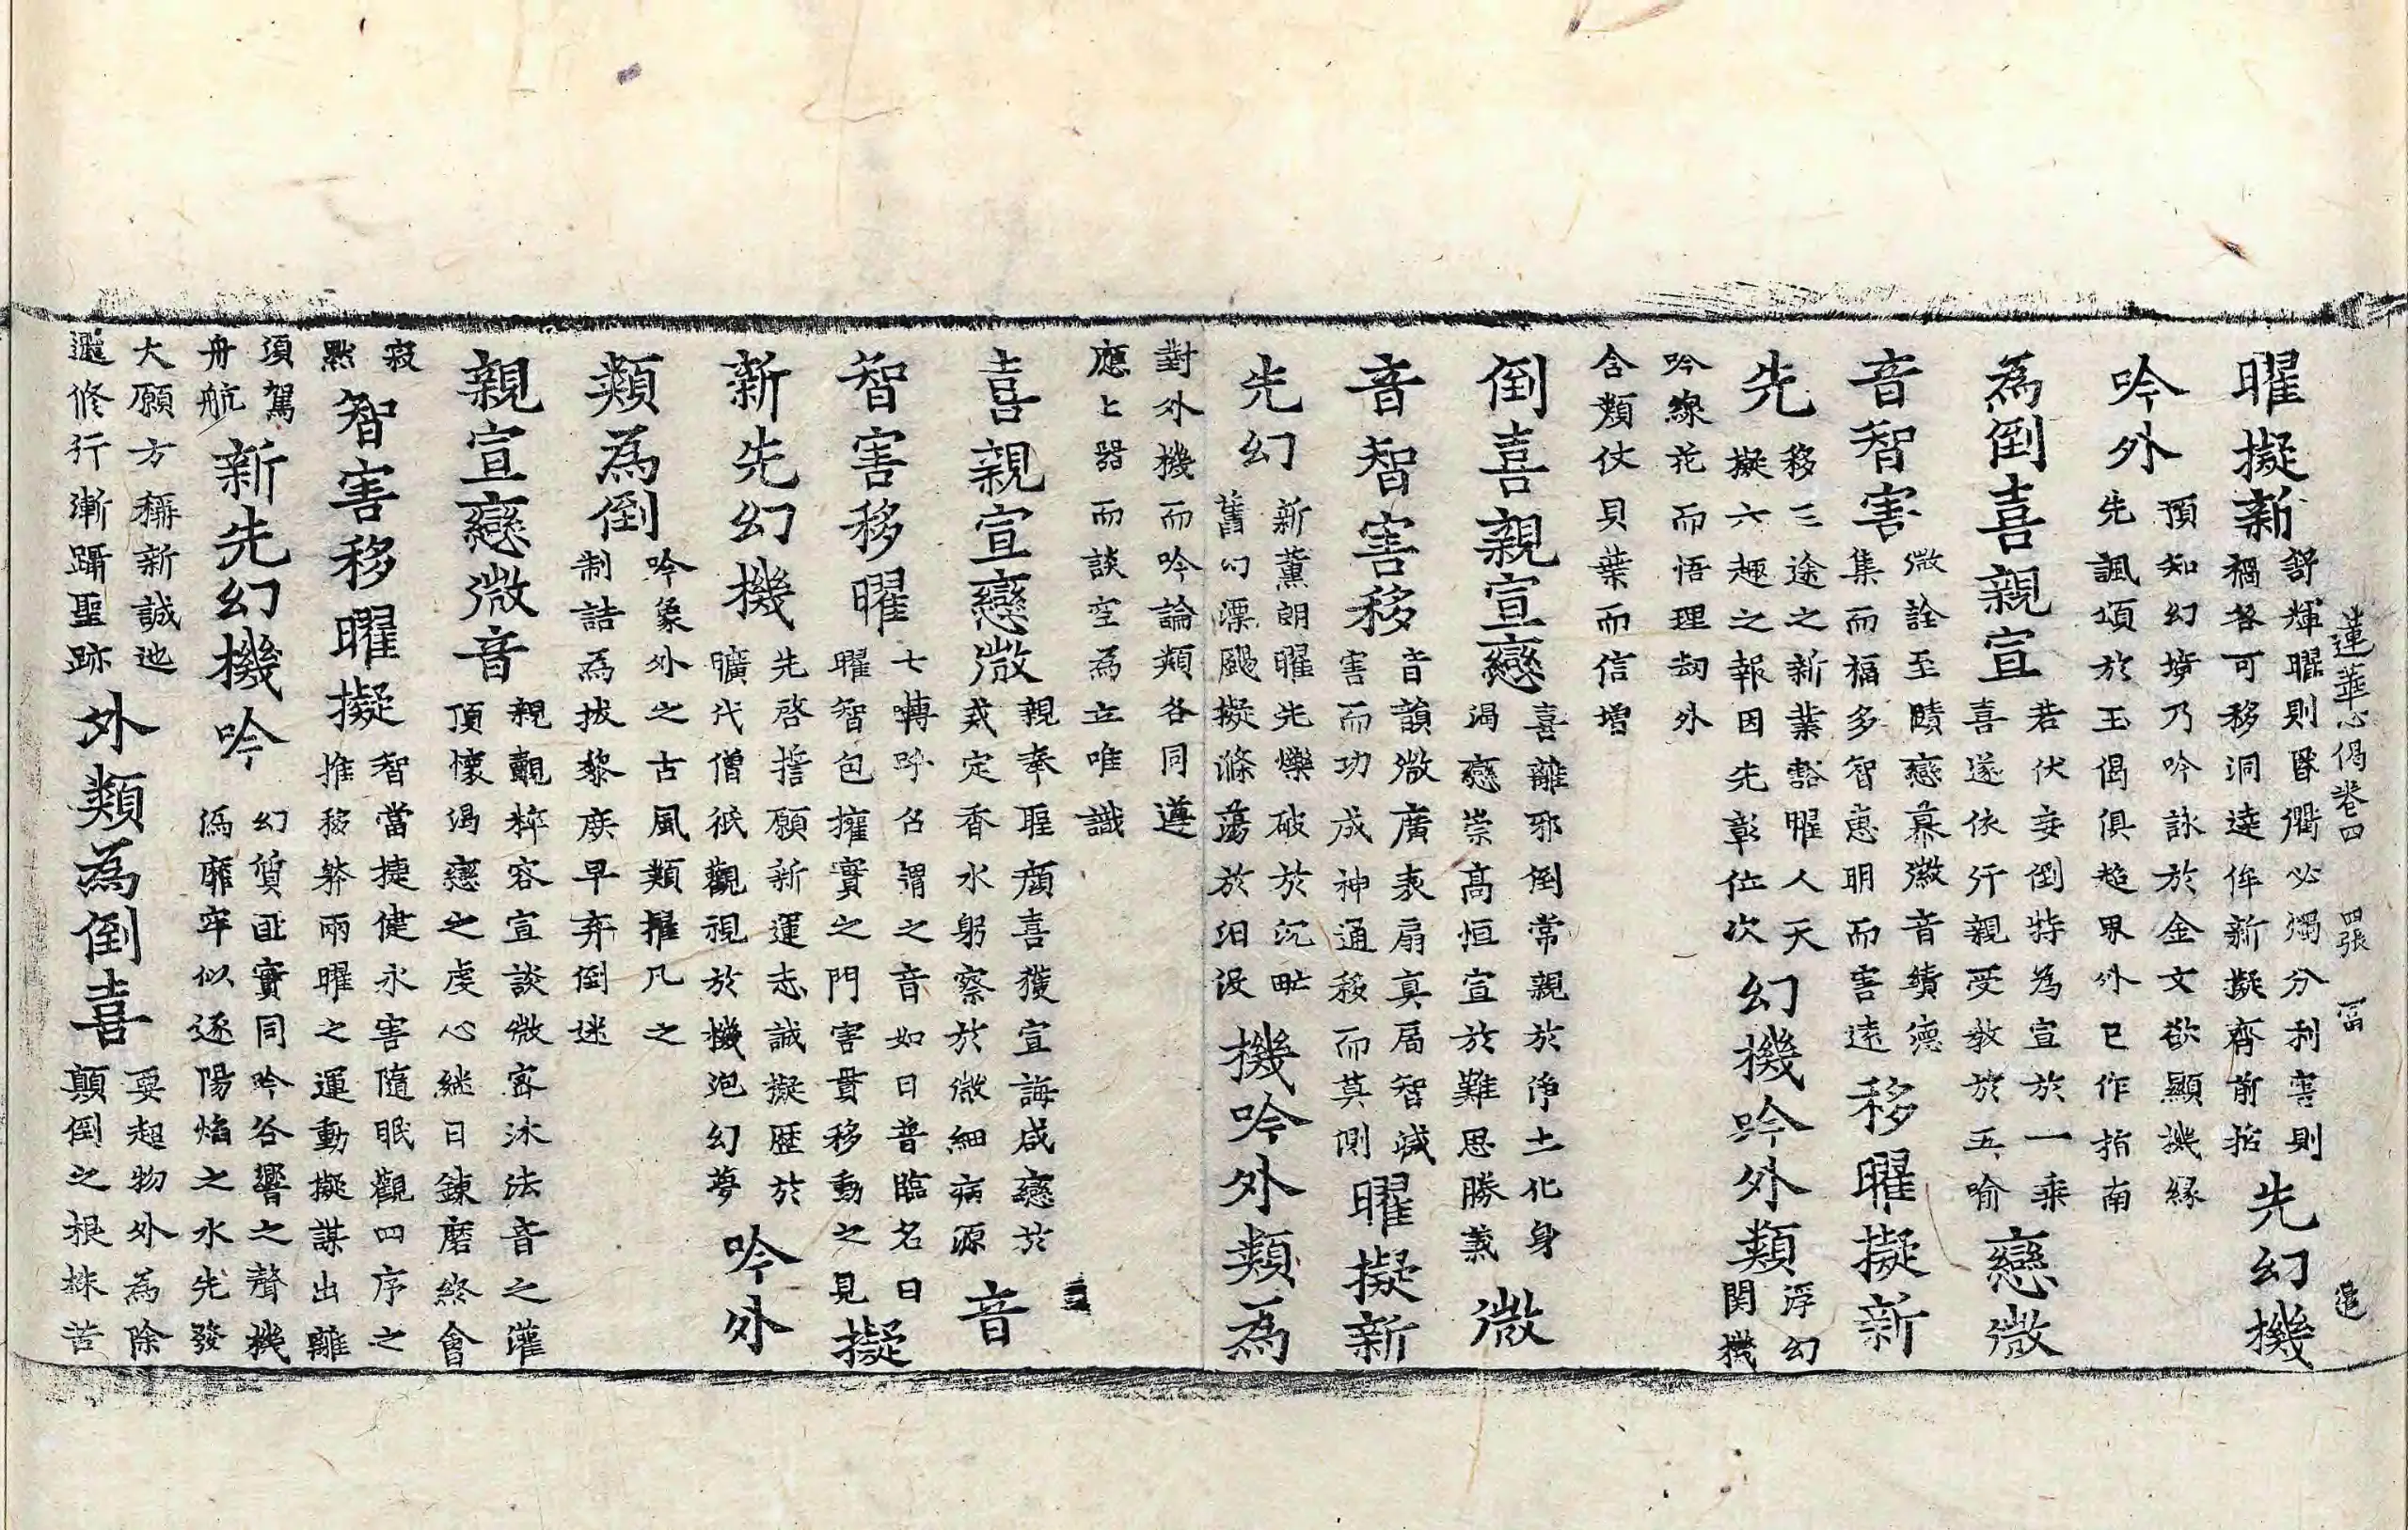 蓮華心偈卷四 四張 富 邕
曜擬新
舒輝曜則昏衢必燭分利害則
禍咎可移洞達侔新擬齊前哲
先幻機
吟外
預知幻境乃吟詠於金文欲顯機緣
先諷頌於玉偈俱超界外已作指南
為倒喜親宣
若伏妄倒特為宣於一乘
喜遂依行親受教於五喻
戀微
音智害
微詮至賾戀慕徽音績德
集而福多智惠明而害遠
移曜擬新
先
移三途之新業豁曜人天
擬六趣之報因先彰位次
幻機吟外類
浮幻
関機
吟線花而悟理劫外
含類仗貝葉而信增
倒喜親宣戀
喜離邪倒常親於淨土化身
渴戀崇高恒宣於難思勝義
微
音智害移
音韻微廣表扇真局智減
害而功成神通移而莫測
曜擬新
先幻
新薰朗曜先爍破於沉𣆶
舊幻漂颺擬滌蕩於汩没
機吟外類為
對外機而吟論類各同遵
應上器而談空為立唯識
喜親宣戀微
親奉聖顏喜獲宣誨咸戀於
戒定香水躬察於微細病源
音
智害移曜
七轉呼召謂之音如日普臨名曰
曜智包擁實之門害貫移動之見
擬
新先幻機
先啓誓願新運志誠擬歷於
曠代僧祇觀視於機泡幻夢
吟外
類為倒
吟象外之古風類擢凡之
制詰為拔黎庶早弃倒迷
親宣戀微音
親覿粹容宣談微密沐法音之灌
頂懷渴戀之虔心継日鍊磨終會
寂
默
智害移曜擬
智當捷健永害隨眠觀四序之
推移榦兩曜之運動擬謀出離
須駕
舟航
新先幻機吟
幻質匪實同吟谷響之聲機
為靡牢似逐陽焰之水先發
大願方稱新誠迆
邐修行漸躡聖跡
外類為倒喜
要超物外為除
顛倒之根株苦